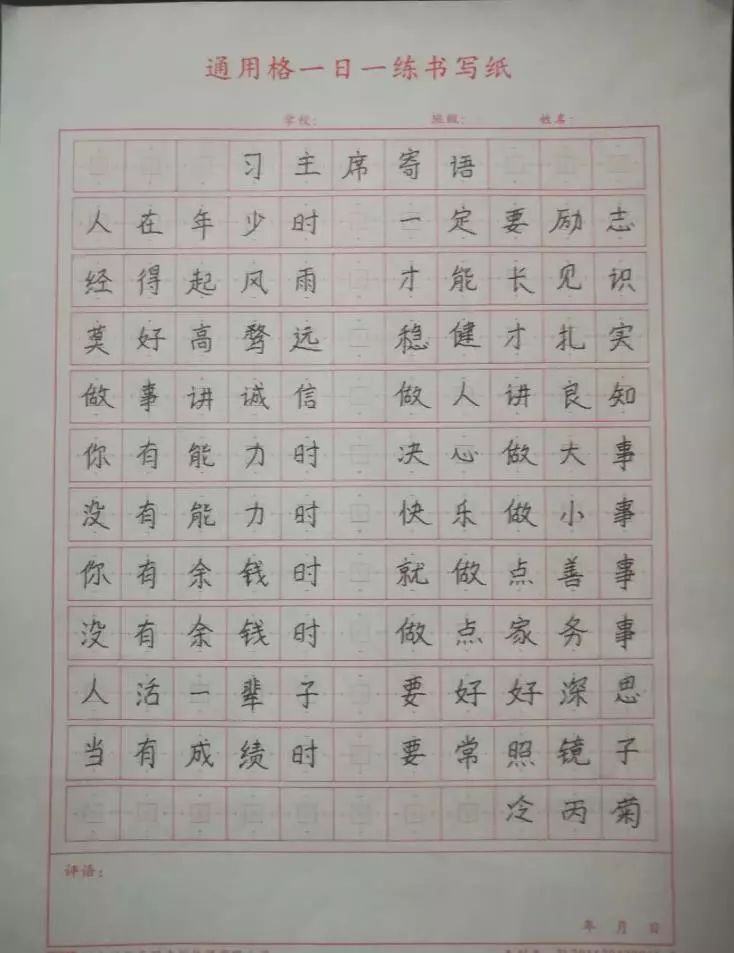 通用格一日一练书写纸
学校： 班级： 姓名：
习主席寄语
人在年少时 一定要励志
经得起风雨 才能长见识
莫好高骛远 稳健才扎实
做事讲诚信 做人讲良知
你有能力时 决心做大事
没有能力时 快乐做小事
你有余钱时 就做点善事
没有余钱时 做点家务事
人活一辈子 要好好深思
当有成绩时 要常照镜子
冷丙菊
评语：
年 月 日